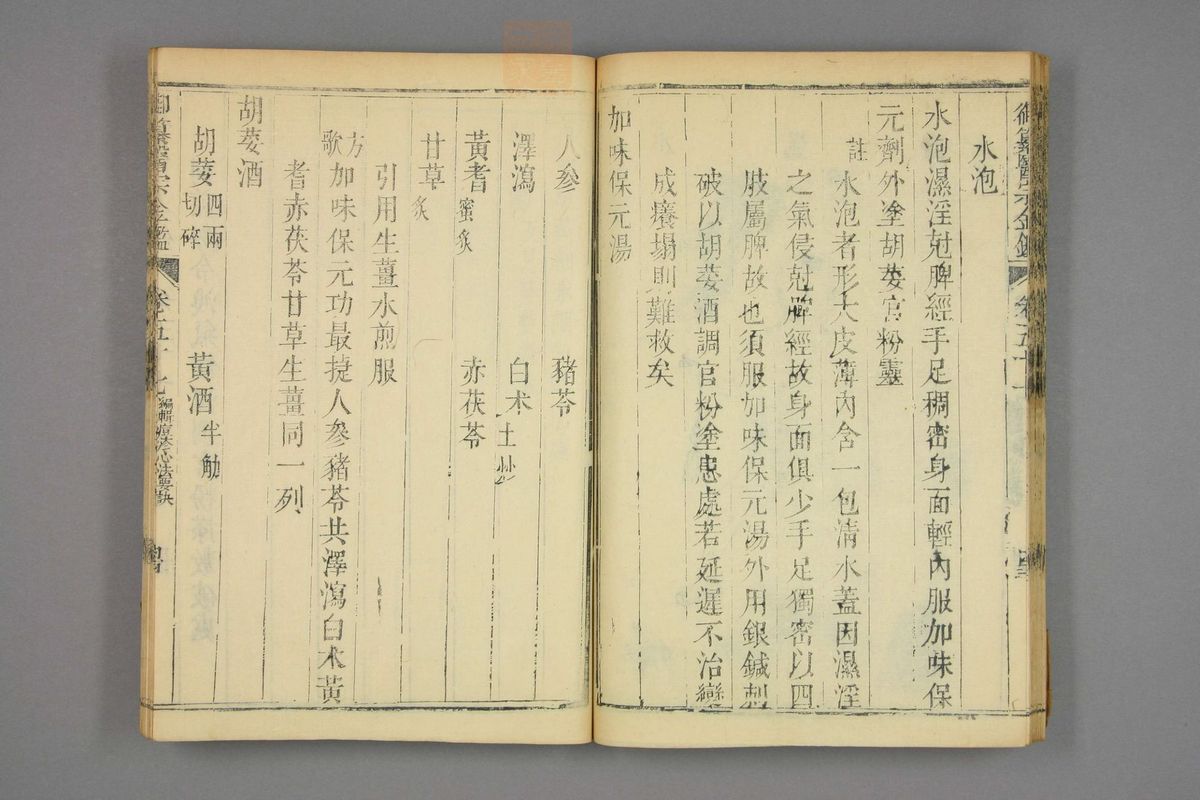 御纂醫宗金鑑
卷五十七
水泡
水泡濕淫尅脾經手足稠密身面輕內服加味保
元劑外塗胡荽官粉靈
註水泡者形大皮薄內含一包清水蓋因濕淫
之氣侵尅脾經故身面俱少手足獨密以四
肢屬脾故也須服加味保元湯外用銀鍼刺
破以胡荽酒調官粉塗患處若延遲不治變
成癢塌則難救矣
加味保元湯
人參 豬苓
澤瀉 白术土炒
黃耆蜜炙 赤茯苓
甘草炙
引用生薑水煎服
方歌加味保元功最捷人參豬苓共澤瀉白术黃
耆赤茯苓甘草生薑同一列
胡荽酒
胡荽四兩切碎 黃酒半觔
御纂醫宗金鑑
卷五十七
編輯痘疹心法要訣